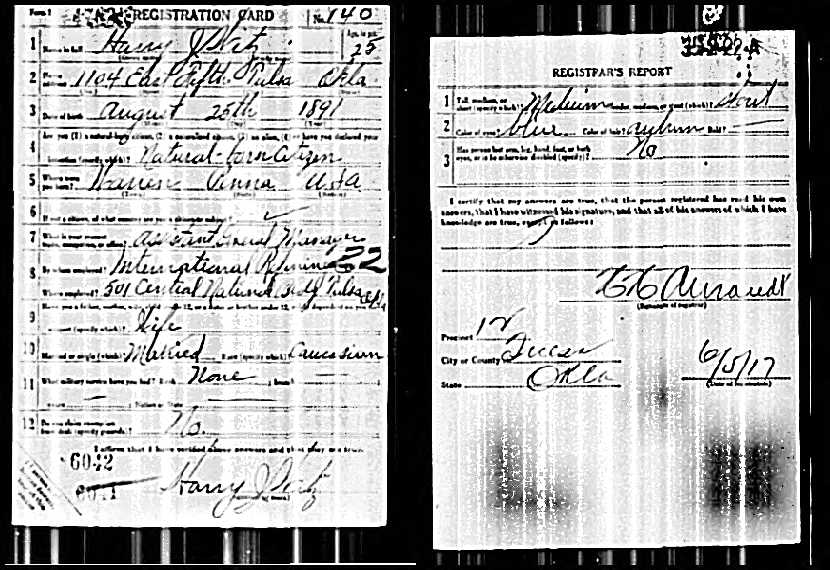 Form 1 REGISTRATION CARD No. 140
1 Name in full Harry J Age, in yrs. 25
2 1104 East Fifth Tulsa Okla
3 Date of birth August 25th 1891
4 Are you (1) a natural-born citizen, (2) a naturalized citizen, (3) an alien, (4) or have you declared your
intention (specify which)? Natural-born Citizen
5 Where were you born? Warren Penna USA
6 If not a citizen, of what country are you a citizen or subject?
7 What is your present trade, occupation, or office? Assistant General Manager
8 By whom employed? International Refining Co 22
Where employed? 501 Central National Bldg Tulsa Okla
9 Have you a father, mother, wife, child under 12, or a sister or brother under 12, solely dependent on you for
support (specify which)? Wife
10 Married or single (which)? Married Race (specify which)? Caucasian
11 What military service have you had? Rank None ; branch
years ; Nation or State
12 Do you claim exemption from draft (specify grounds)? No.
I affirm that I have verified above answers and that they are true.
6042
6041
Harry J
REGISTRAR'S REPORT
1 Tall, medium, or short (specify which)? Medium Slender, medium, or stout (which)? Stout
2 Color of eyes? blue Color of hair? auburn Bald?
3 Has person lost arm, leg, hand, foot, or both eyes, or is he otherwise disabled (specify)? No
I certify that my answers are true, that the person registered has read his own
answers, that I have witnessed his signature, and that all of his answers of which I have
knowledge are true, except as follows:
(Signature of registrar)
Precinct 12
City or County Tulsa
State Okla
6/5/17
(Date of registration)